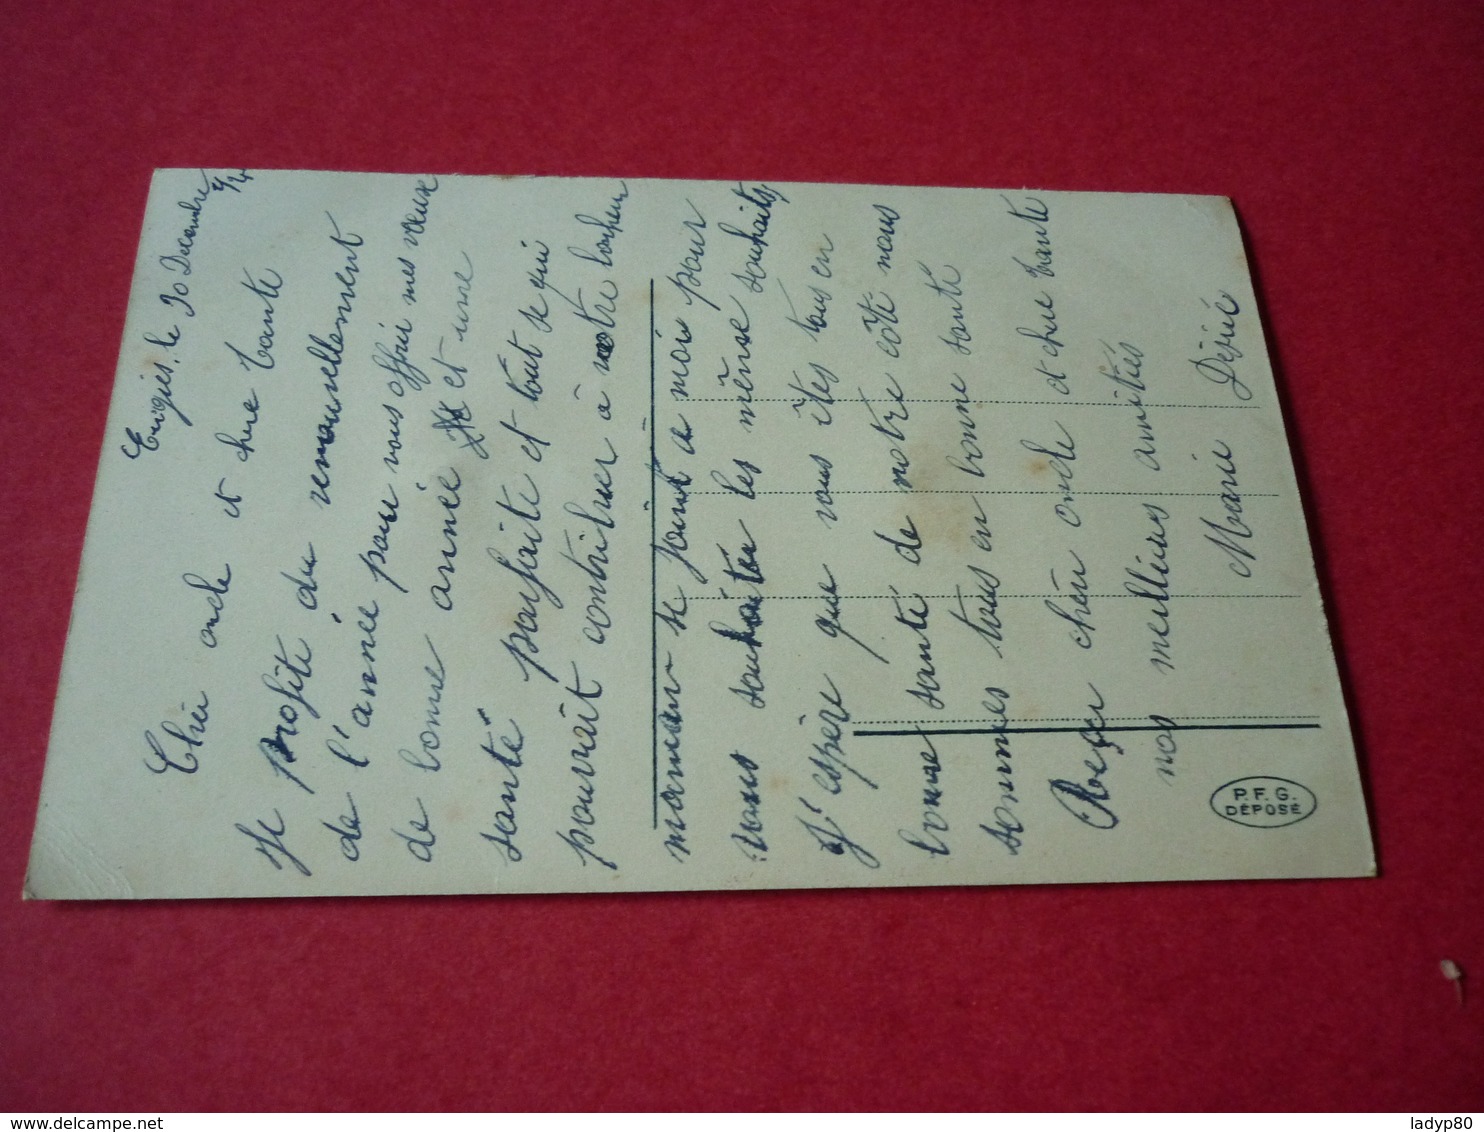 Engis, le 30 Decembre
Chér oncle et chere tante
Je profite du renouvellement
de l'année pour vous offrir mes vœux
de bonne année et une
santé parfaite et tout se qui
pourrait contribuer à votre bonheur
maman se joint a moi pour
vous souhaiter les même souhaits,
J'espère que vous êtes tous en
bonne santé de notre côté nous
sommes tous en bonne santé
Reçer chér oncle et chere tante
nos meillieurs amitiés
Marie Désiré
P.F.G.
DÉPOSÉ
delcampe.net
ladyp80